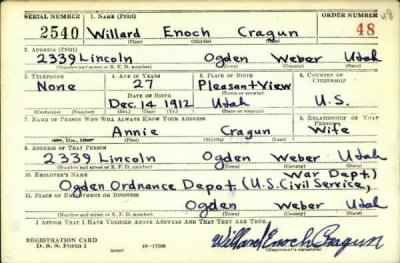 SERIAL NUMBER 1. NAME (Print) ORDER NUMBER
2540 Willard Enoch Cragun 48
(First) (Middle) (Last)
2. ADDRESS (Print)
2339 Lincoln Ogden Weber Utah
(Number and street or R. F. D. number) (Town) (County) (State)
3. TELEPHONE 4. AGE IN YEARS 5. PLACE OF BIRTH 6. COUNTRY OF CITIZENSHIP
None 27 Pleasant View
DATE OF BIRTH
Dec. 14 1912 Utah U.S.
(Exchange) (Number) (Mo.) (Day) (Yr.) (State or country)
7. NAME OF PERSON WHO WILL ALWAYS KNOW YOUR ADDRESS 8. RELATIONSHIP OF THAT PERSON
Annie Cragun Wife
(Mr., Mrs., Miss) (First) (Middle) (Last)
9. ADDRESS OF THAT PERSON
2339 Lincoln Ogden Weber Utah
(Number and street or R. F. D. number) (Town) (County) (State)
10. EMPLOYER'S NAME War Dept)
Ogden Ordnance Depot (U.S. Civil Service,
11. PLACE OF EMPLOYMENT OR BUSINESS
Ogden Weber Utah
(Number and street or R. F. D. number) (Town) (County) (State)
I AFFIRM THAT I HAVE VERIFIED ABOVE ANSWERS AND THAT THEY ARE TRUE.
REGISTRATION CARD
D. S. S. Form 1 (over) 16-17105 Willard Enoch Cragun